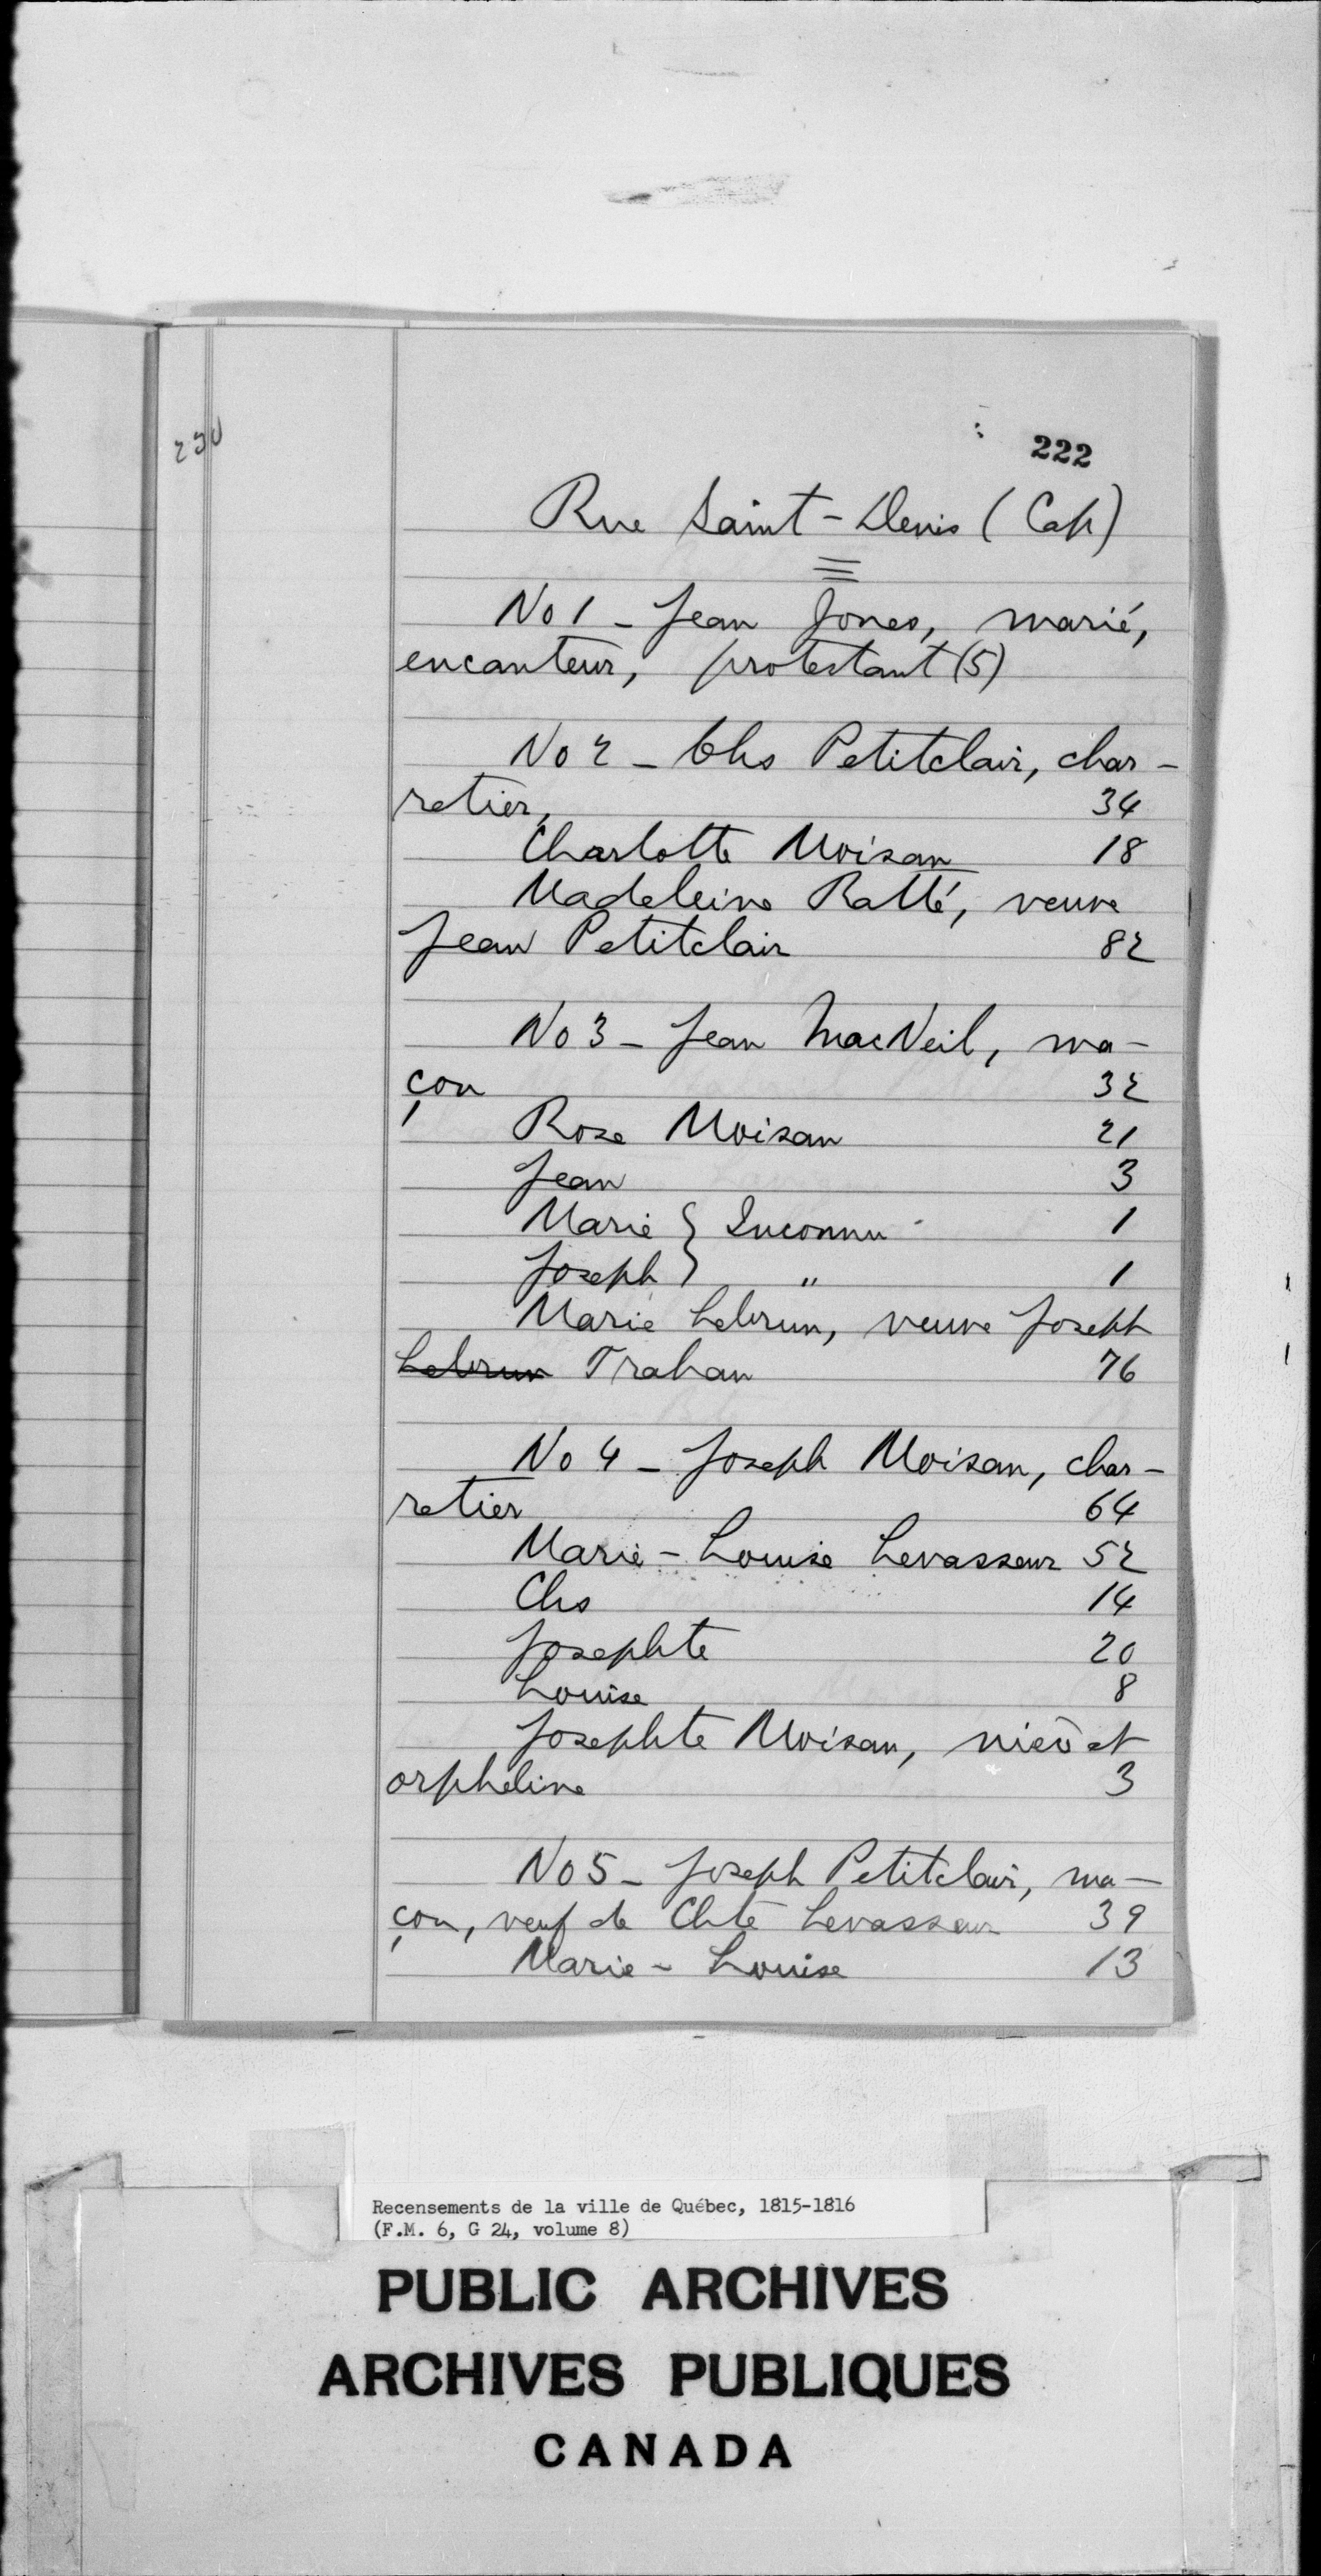 222
Rue Saint-Denis (Cap)
No 1 - Jean Jones, marié,
encanteur, protestant (5)
No 2 - Chs Petitclair, char-
retier, 34
Charlotte Moisan 18
Madeleine Ratté, veuve
Jean Petitclair 82
No 3 - Jean MacNeil, ma-
çon 32
Rose Moisan 21
Jean 3
Marie } Inconnu 1
Joseph } " 1
Marie Lebrun, veuve Joseph
Lebrun Trahan 76
No 4 - Joseph Moisan, char-
retier 64
Marie-Louise Levasseur 52
Chs 14
Josephte 20
Louise 8
Josephte Moisan, et
orpheline 3
No 5 - Joseph Petitclair, ma-
çon, veuf de Chte Levasseur 39
Marie-Louise 13
Recensements de la ville de Québec, 1815-1816
(F.M. 6, G 24, volume 8)
PUBLIC ARCHIVES
ARCHIVES PUBLIQUES
CANADA